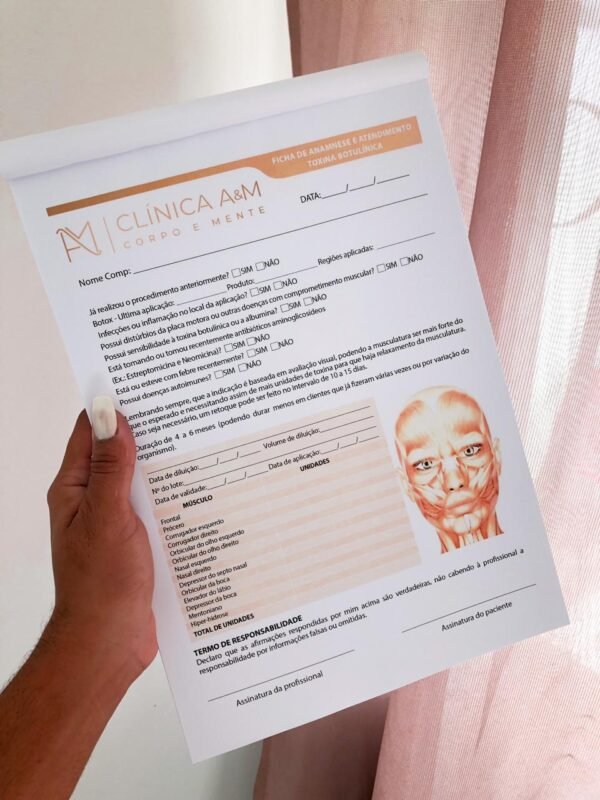 FICHA DE ANAMNESE E ATENDIMENTO
TOXINA BOTULÍNICA
AM
CLÍNICA A&M
CORPO E MENTE
DATA:____/____/____
Nome Comp:
Já realizou o procedimento anteriormente? ☐SIM ☐NÃO
Botox - Ultima aplicação: ____________ Produto: ____________ Regiões aplicadas: ____________
Infecções ou inflamação no local da aplicação? ☐SIM ☐NÃO
Possui distúrbios da placa motora ou outras doenças com comprometimento muscular? ☐SIM ☐NÃO
Possui sensibilidade à toxina botulínica ou a albumina? ☐SIM ☐NÃO
Está tomando ou tomou recentemente antibióticos aminoglicosídeos
(Ex.: Estreptomicina e Neomicina)? ☐SIM ☐NÃO
Está ou esteve com febre recentemente? ☐SIM ☐NÃO
Possui doenças autoimunes? ☐SIM ☐NÃO
Lembrando sempre, que a indicação é baseada em avaliação visual, podendo a musculatura ser mais forte do
que o esperado e necessitando assim de mais unidades de toxina para que haja relaxamento da musculatura.
Caso seja necessário, um retoque pode ser feito no intervalo de 10 a 15 dias.
Duração de 4 a 6 meses (podendo durar menos em clientes que já fizeram várias vezes ou por variação do
organismo).
Data de diluição:____/____/____ Volume de diluição:
Nº do lote: ____________ Data de aplicação:____/____/____
Data de validade:____/____/____
MÚSCULO UNIDADES
Frontal
Prócero
Corrugador esquerdo
Corrugador direito
Orbicular do olho esquerdo
Orbicular do olho direito
Nasal esquerdo
Nasal direito
Depressor do septo nasal
Orbicular da boca
Elevador do lábio
Depressor da boca
Mentoniano
Hiper-hidrose
TOTAL DE UNIDADES
TERMO DE RESPONSABILIDADE
Declaro que as afirmações respondidas por mim acima são verdadeiras, não cabendo à profissional a
responsabilidade por informações falsas ou omitidas.
Assinatura da profissional Assinatura do paciente